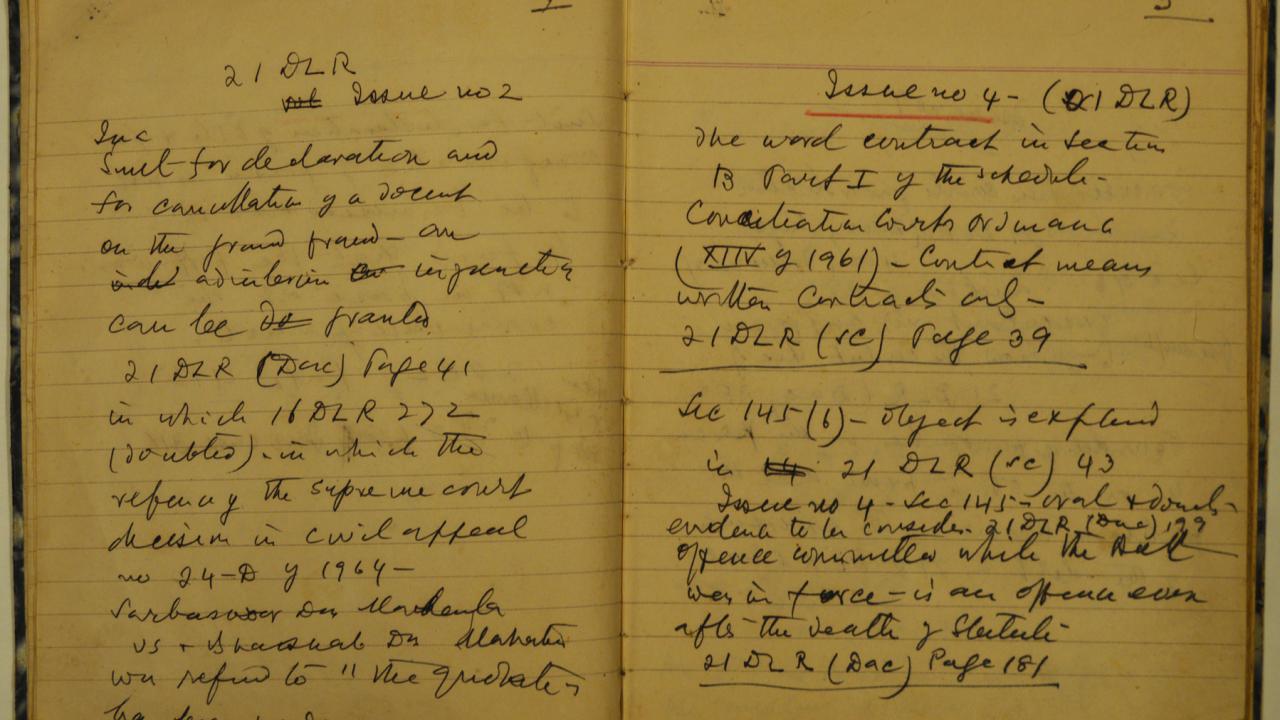 21 DLR
Issue no 2
Suit for declaration and
for cancellation of a docent
on the ground fraud - an
ad interim injunction
can be granted
21 DLR (Dac) Page 41
in which 16 DLR 272
(doubted) - in which the
the Supreme court
decision in civil appeal
no 24-D of 1964 -
Das
vs Das
was referred to " the
3
Issue no 4 - (21 DLR)
The word contract in section
B Part I of the schedule -
Conciliation Courts ordinance
(XLIV of 1961) - Contract means
written Contracts only -
21 DLR (SC) Page 39
Sec 145 (6) - object is explained
in 21 DLR (SC) 43
Issue no 4 - Sec 145 - oral &
evidence to be consider. 21 DLR (Dac) 199
offence committed while the Act
was in force - is an offence even
after the death of Statute
21 DLR (Dac) Page 181